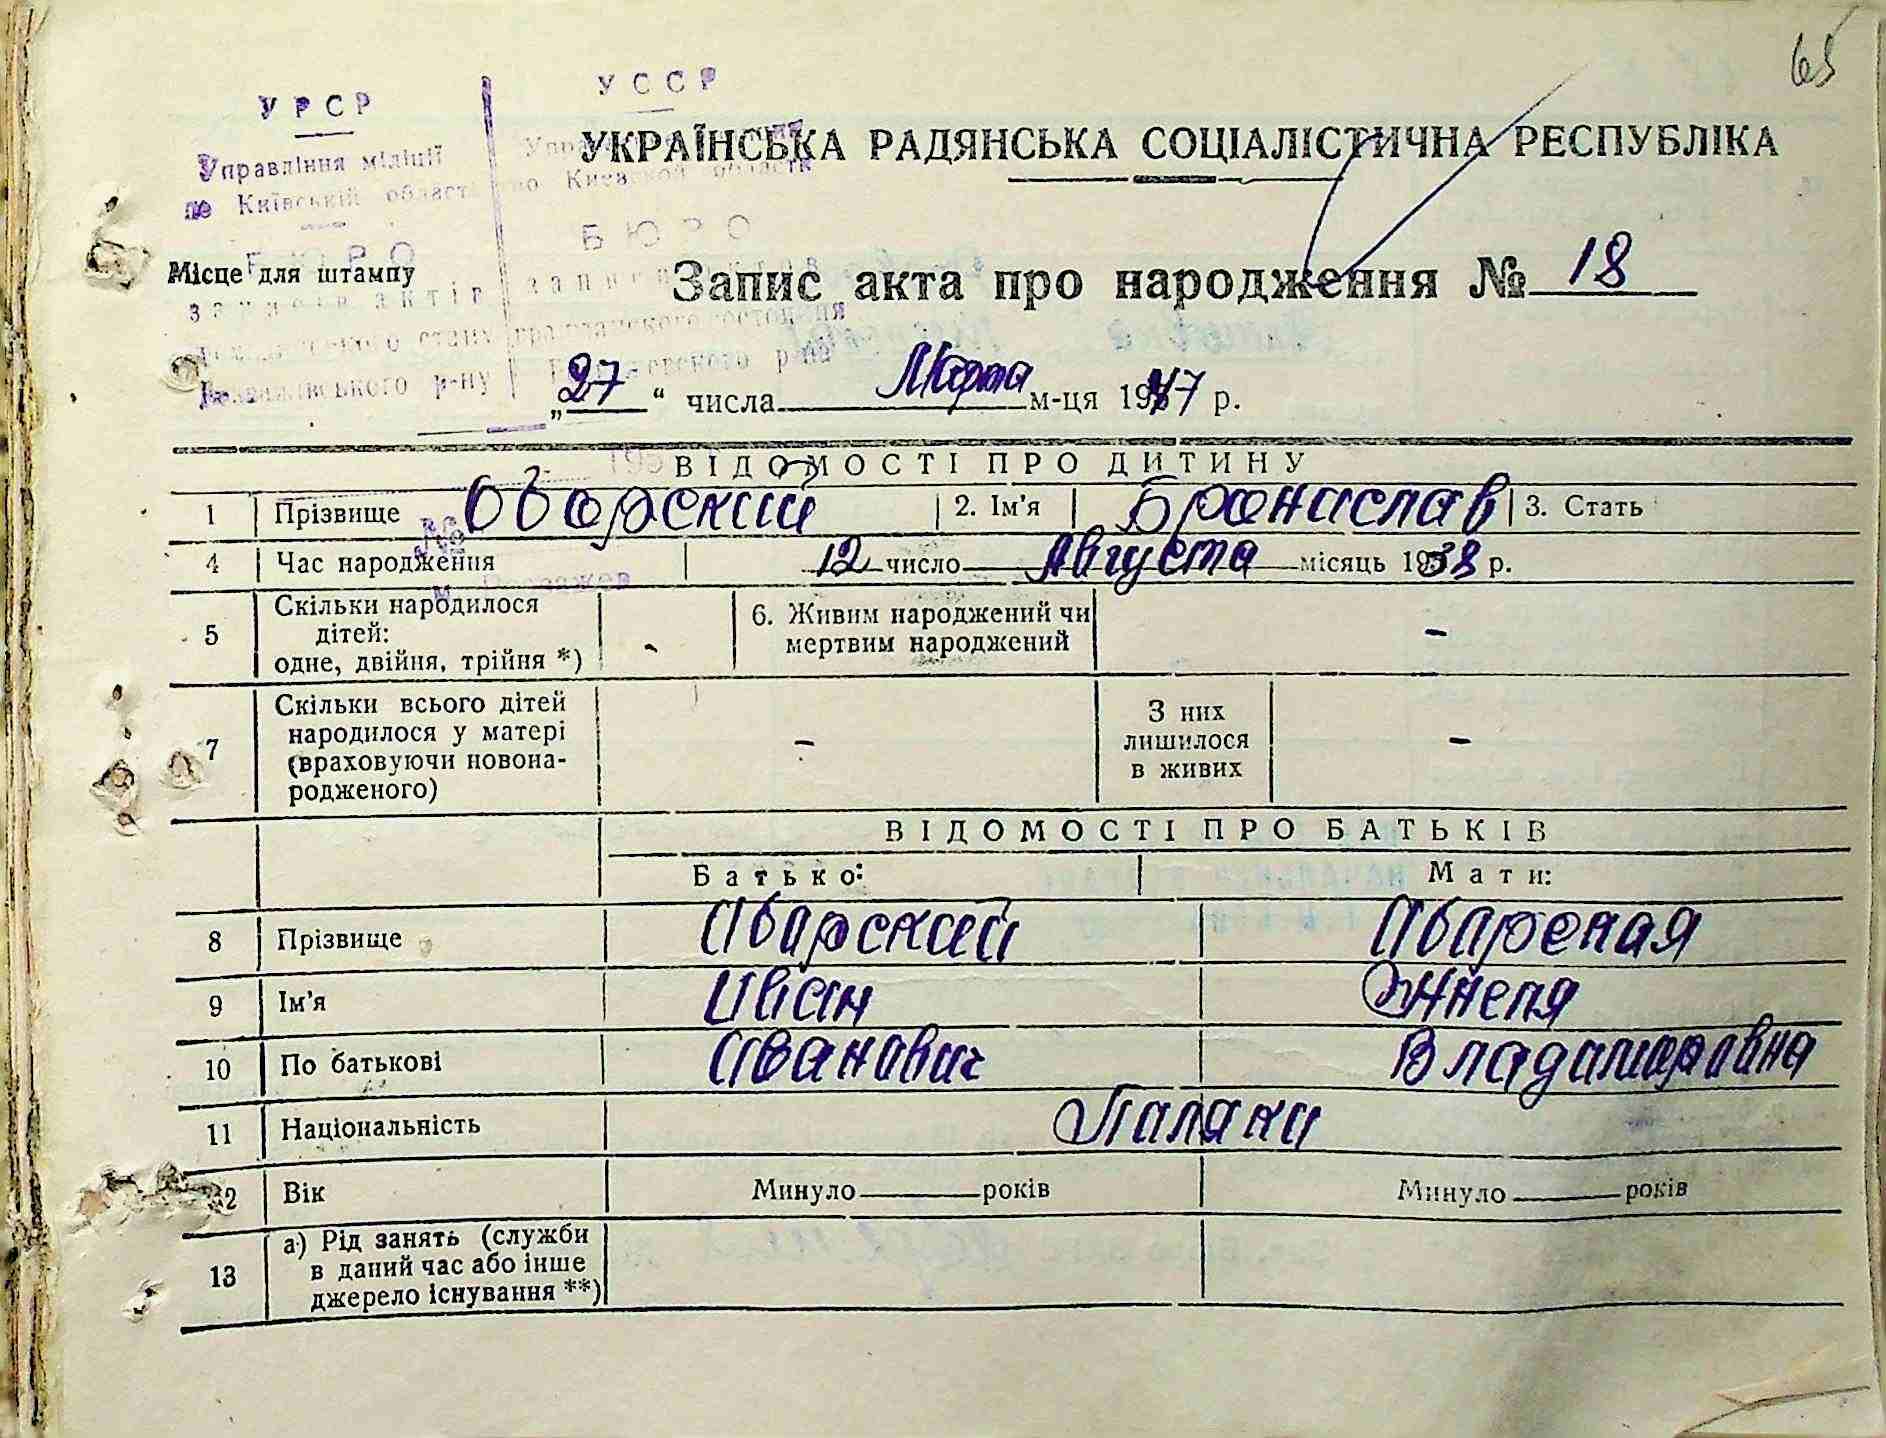 65
УРСР
УССР
Управління міліції
по Київській област
по Киевской области
УКРАЇНСЬКА РАДЯНСЬКА СОЦІАЛІСТИЧНА РЕСПУБЛІКА
БЮРО
БЮРО
Місце для штампу
Запис акта про народження № 18
записів актів
р-ну
р-на
„27“ числа Марта м-ця 1947 р.
ВІДОМОСТІ ПРО ДИТИНУ
1 Прізвище Оворский 2. Ім'я Бронислав 3. Стать
4 Час народження 12 число Августа місяць 1938 р.
5 Скільки народилося дітей: одне, двійня, трійня *) - 6. Живим народжений чи мертвим народжений -
7 Скільки всього дітей народилося у матері (враховуючи новонародженого) - З них лишилося в живих -
ВІДОМОСТІ ПРО БАТЬКІВ
Батько: Мати:
8 Прізвище
9 Ім'я Иван
10 По батькові Иванович
11 Національність Паляки
12 Вік Минуло років Минуло років
13 а) Рід занять (служби в даний час або інше джерело існування **)